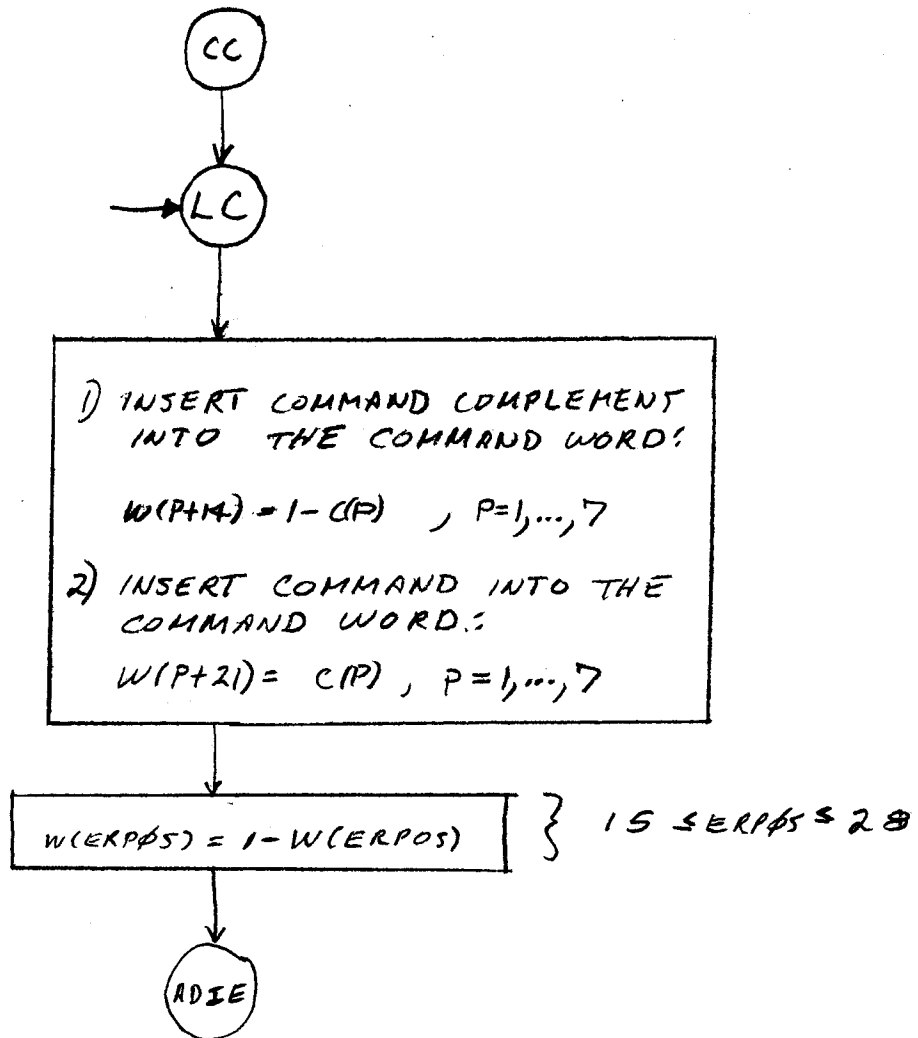 CC
LC
1) INSERT COMMAND COMPLEMENT
INTO THE COMMAND WORD:
W(P+14) = 1-C(P) , P=1,...,7
2) INSERT COMMAND INTO THE
COMMAND WORD.:
W(P+21) = C(P), P=1,...,7
W(ERPØS) = 1-W(ERPOS) } 15 ≤ ERPØS ≤ 28
ADIE